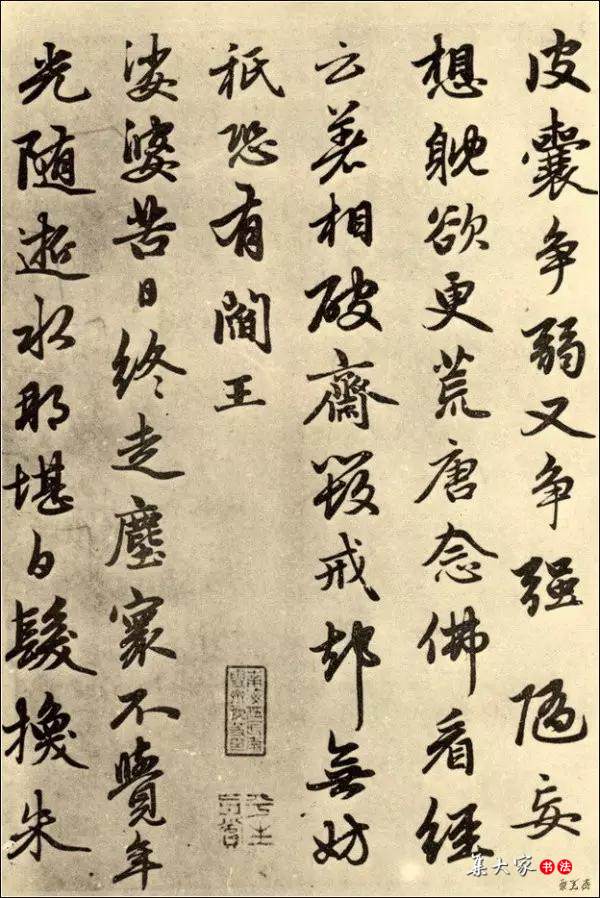 皮囊争弱又争强随妄
想躭欲更荒唐念佛看經
云著相破齋毀戒却無妨
祇恐有閻王
娑婆苦日終走塵寰不覺年
光随逝水那堪白髮換朱
集大家书法